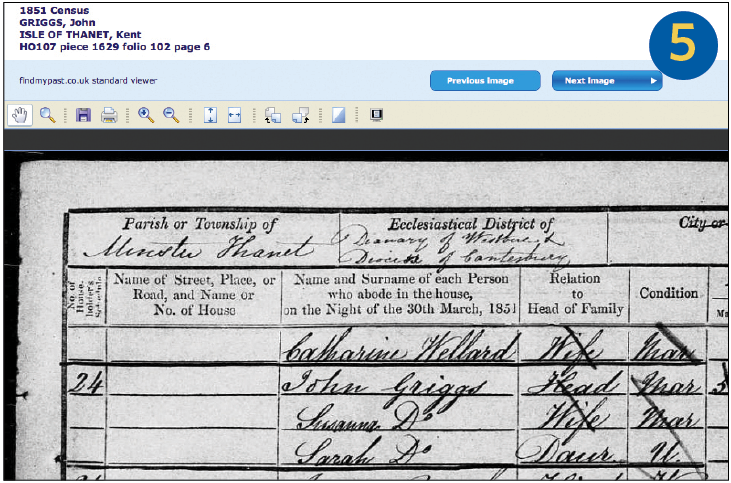 1851 Census
GRIGGS, John
ISLE OF THANET, Kent
HO107 piece 1629 folio 102 page 6
5
findmypast.co.uk standard viewer
Previous Image
Next Image
Parish or Township of
Ecclesiastical District of
City or
Minster Thanet
Deanary of
Diocese of Canterbury
No. of House-holder's Schedule
Name of Street, Place, or Road, and Name or No. of House
Name and Surname of each Person who abode in the house, on the Night of the 30th March, 1851
Relation to Head of Family
Condition
Catharine Wellard Wife Mar
24 John Griggs Head Mar
Susanna Do Wife Mar
Sarah Do Daur U.